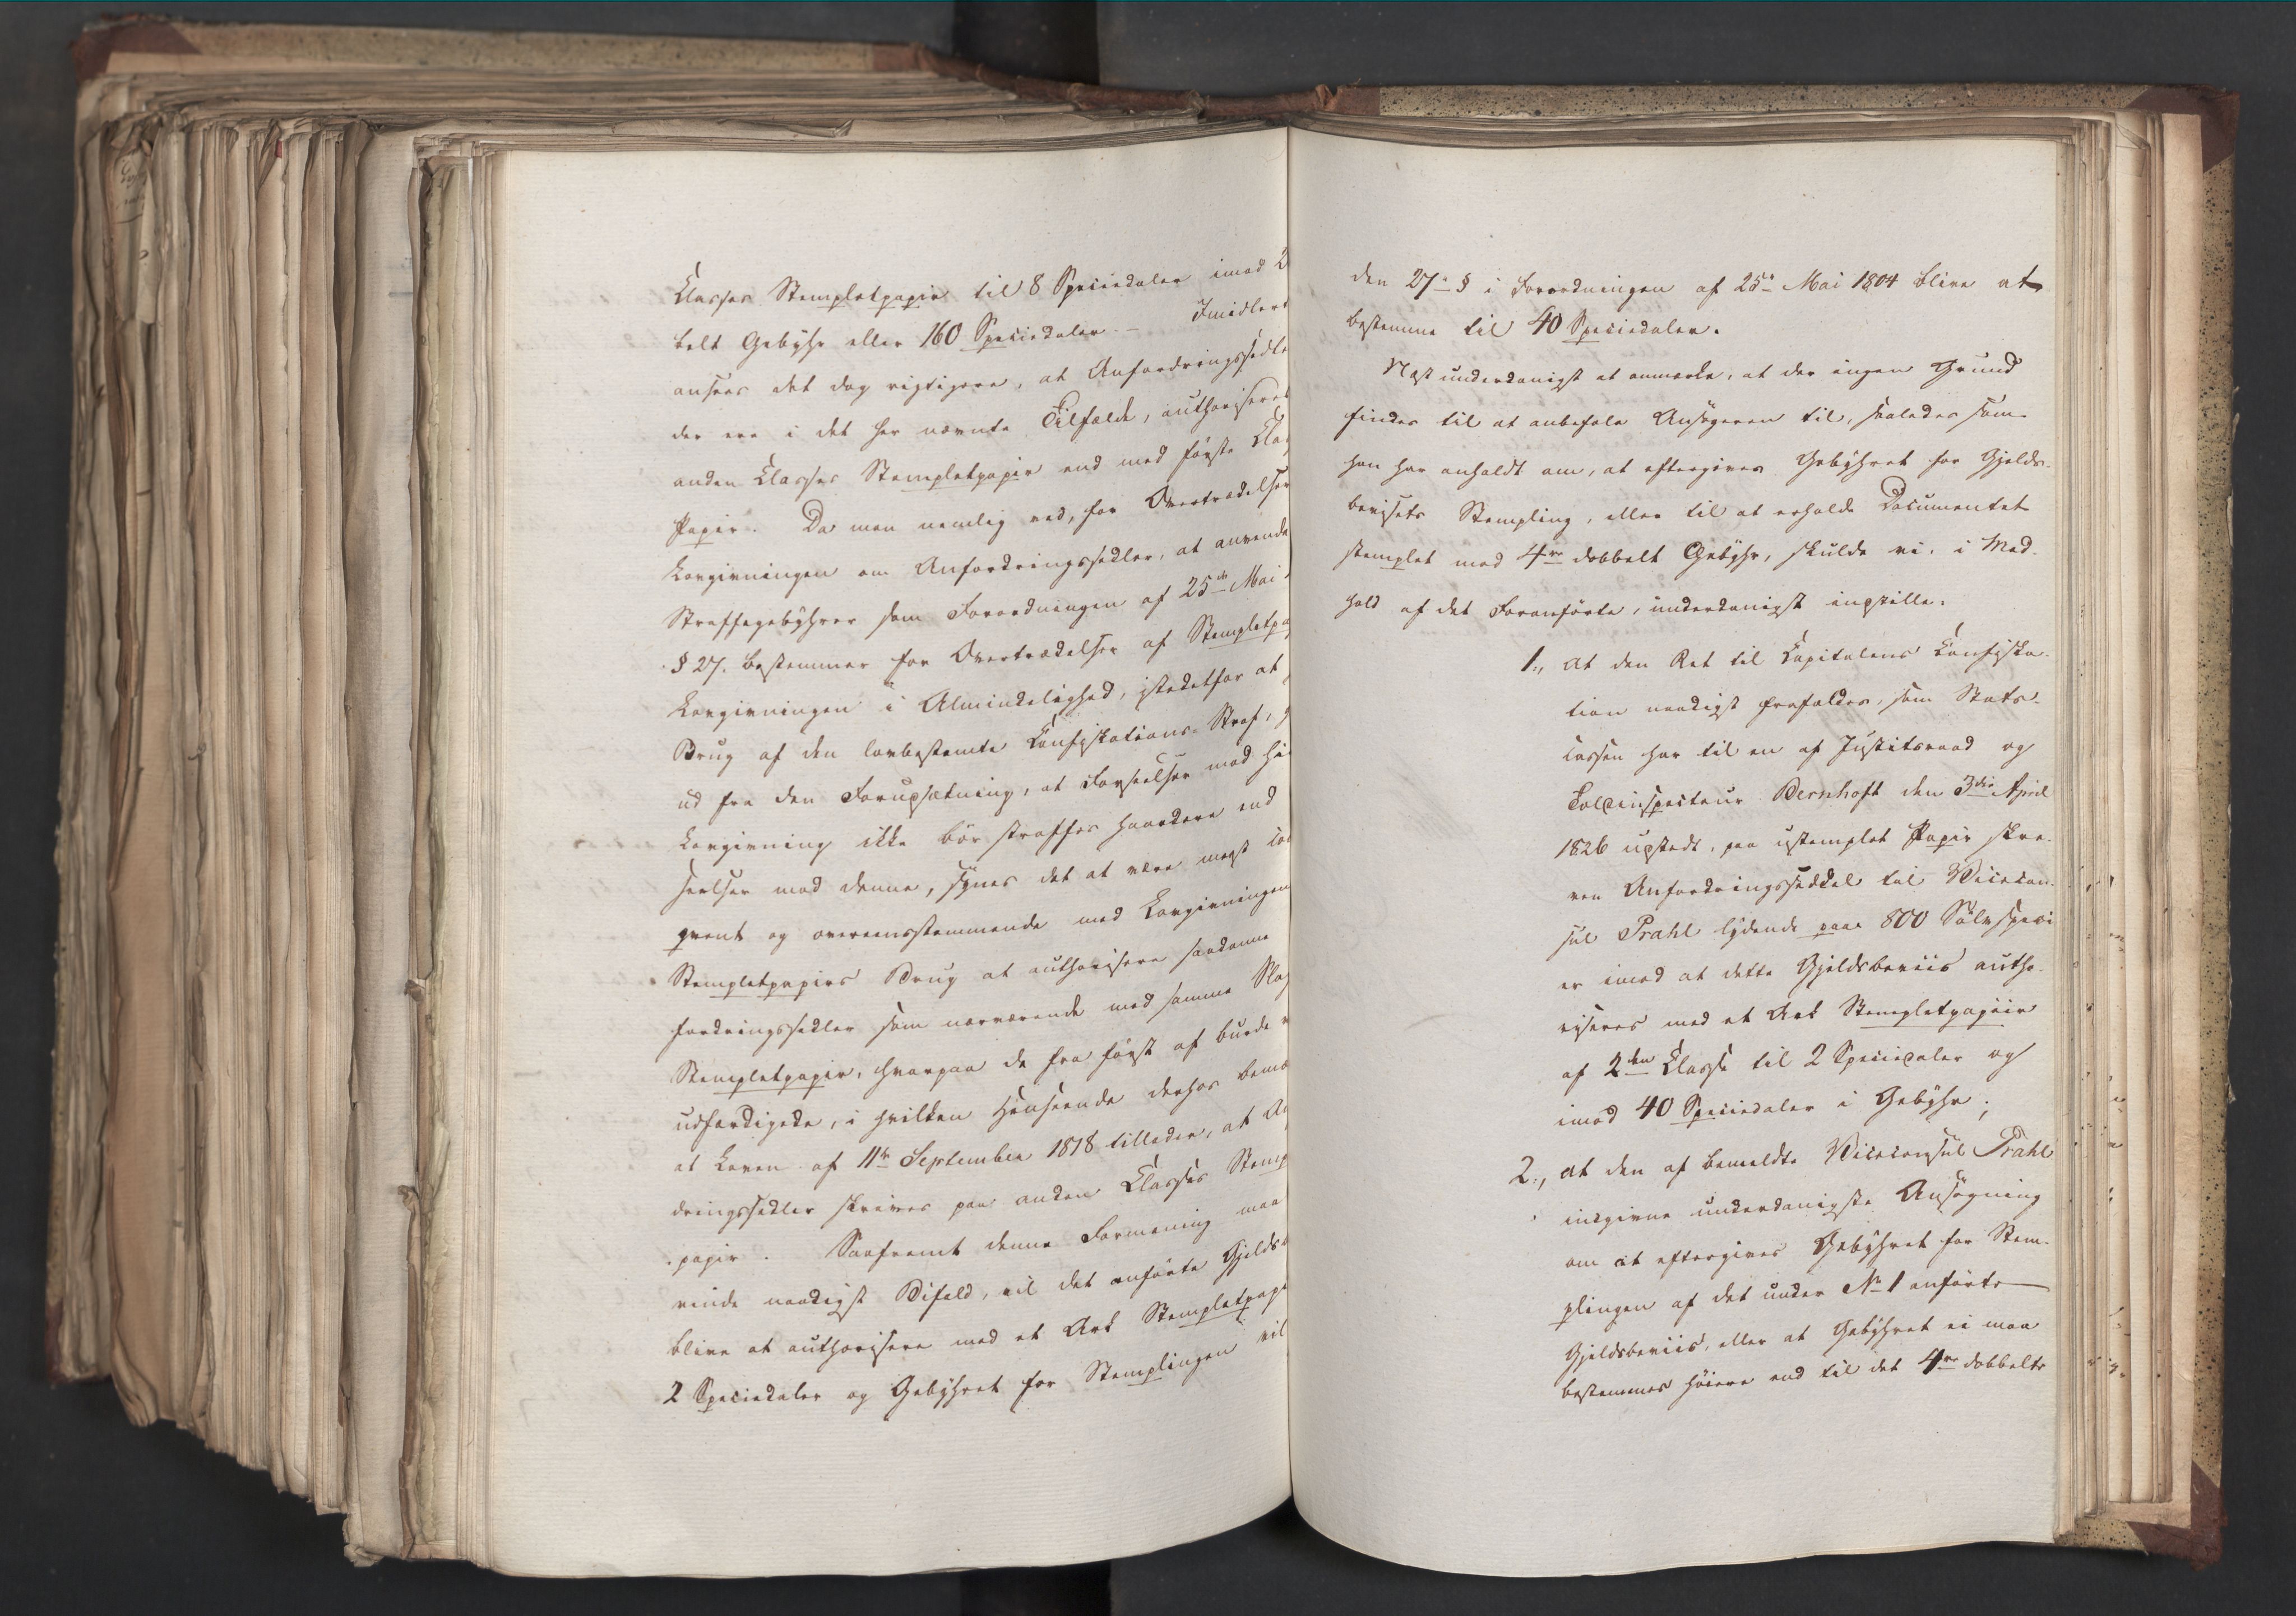 Classes Stempletpapir til 8 Speciedaler imod 2
belt Gebyhr eller 160 Speciedaler. – Imidlert
ansees det dog rigtigere, at Anfordringssedle
der ere i det her nævnte Tilfælde, authoriseret
anden Classes Stempletpapir end med første Clas
Papir. Da man nemlig ved, for Overtrædelser
Lovgivningen om Anfordringssedler, at anvende
Straffegebyhrer som Forordningen af 25de Mai
§ 27. bestemmer for Overtrædelser af Stempletpa
Lovgivningen i Almindelighed, istedetfor at
Brug af den lovbestemte Confiskations-Straf, g
ud fra den Forudsætning, at Forseelser mod hi
Lovgivning ikke bør straffes haardere end
seelser mod denne, synes det at være meest con
qvent og overeensstemmende med Lovgivningen
Stempletpapirs Brug at authorisere saadanne
fordringssedler som nærværende med samme Slag
Stempletpapir, hvorpaa de fra først af burde v
udfærdigede, i hvilken Henseende derhos bemæ
at Loven af 11te September 1818 tillader, at An
dringssedler skrives paa anden Classes Stemp
papir. Saafremt denne Formening maa
vinde naadigst Bifald, vil det anførte Gjelds
blive at authorisere med et Ark Stempletpapi
2 Speciedaler og Gebyhret for Stemplingen vil
den 27de § i Forordningen af 25de Mai 1804 blive at
bestemme til 40 Speciedaler.
Næst underdanigst at anmærke, at der ingen Grund
findes til at anbefale Ansøgeren til, saaledes som
han har anholdt om, at eftergives Gebyhret for Gjelds-
bevisets Stempling, eller til at erholde Documentet
stemplet med 4re dobbelt Gebyhr, skulde vi, i Med-
hold af det Foranførte, underdanigst indstille:
1., at den Ret til Capitalens Confiska-
tion naadigst frafaldes, som Stats-
cassen har til en af Justitsraad og
Toldinspecteur Bernhoft den 3die April
1826 udstedt, paa ustemplet Papir skre-
ven Anfordringsseddel til Viceecon-
sul Prahl lydende paa 800 Sølvspeci
er imod at dette Gjeldsbeviis autho-
riseres med et Ark Stempletpapiir
af 2den Classe til 2 Speciedaler og
imod 40 Speciedaler i Gebyhr;
2., at den af bemeldte Viceconsul Prahl
indgivne underdanigste Ansøgning
om at eftergives Gebyhret for Stem-
plingen af det under No 1 anførte
Gjeldsbeviis, eller at Gebyhret ei maa
bestemmes høiere end til det 4re dobbelte